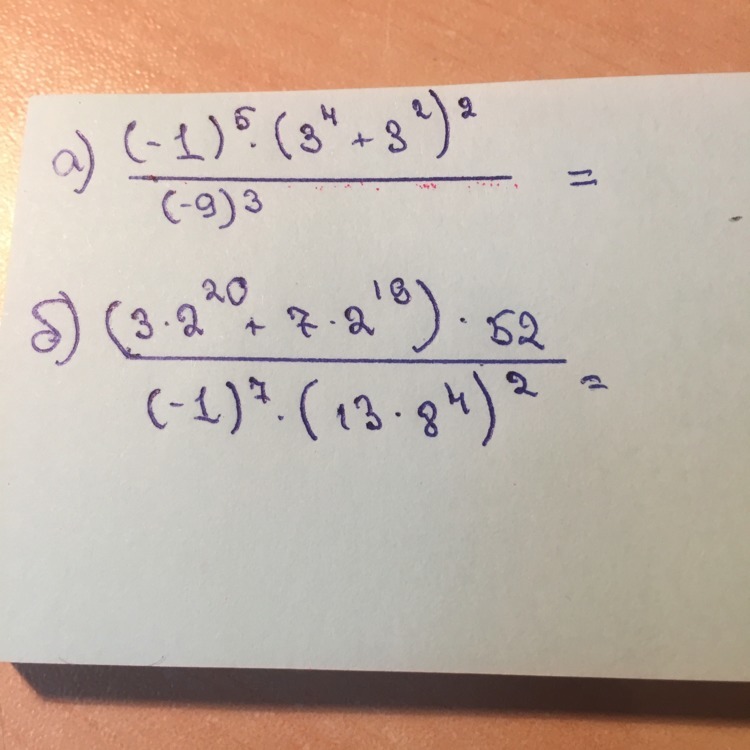 а) (-1)⁵ · (3⁴ + 3²)² =
(-9)³
б) (3 · 2²⁰ + 7 · 2¹⁹) · 52 =
(-1)⁷ · (13 · 8⁴)²